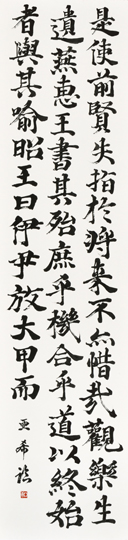 是使前賢失指於將來不亦惜哉觀樂生
遺燕惠王書其殆庶乎機合乎道以終始
者與其喻昭王曰伊尹放大甲而
亞希臨